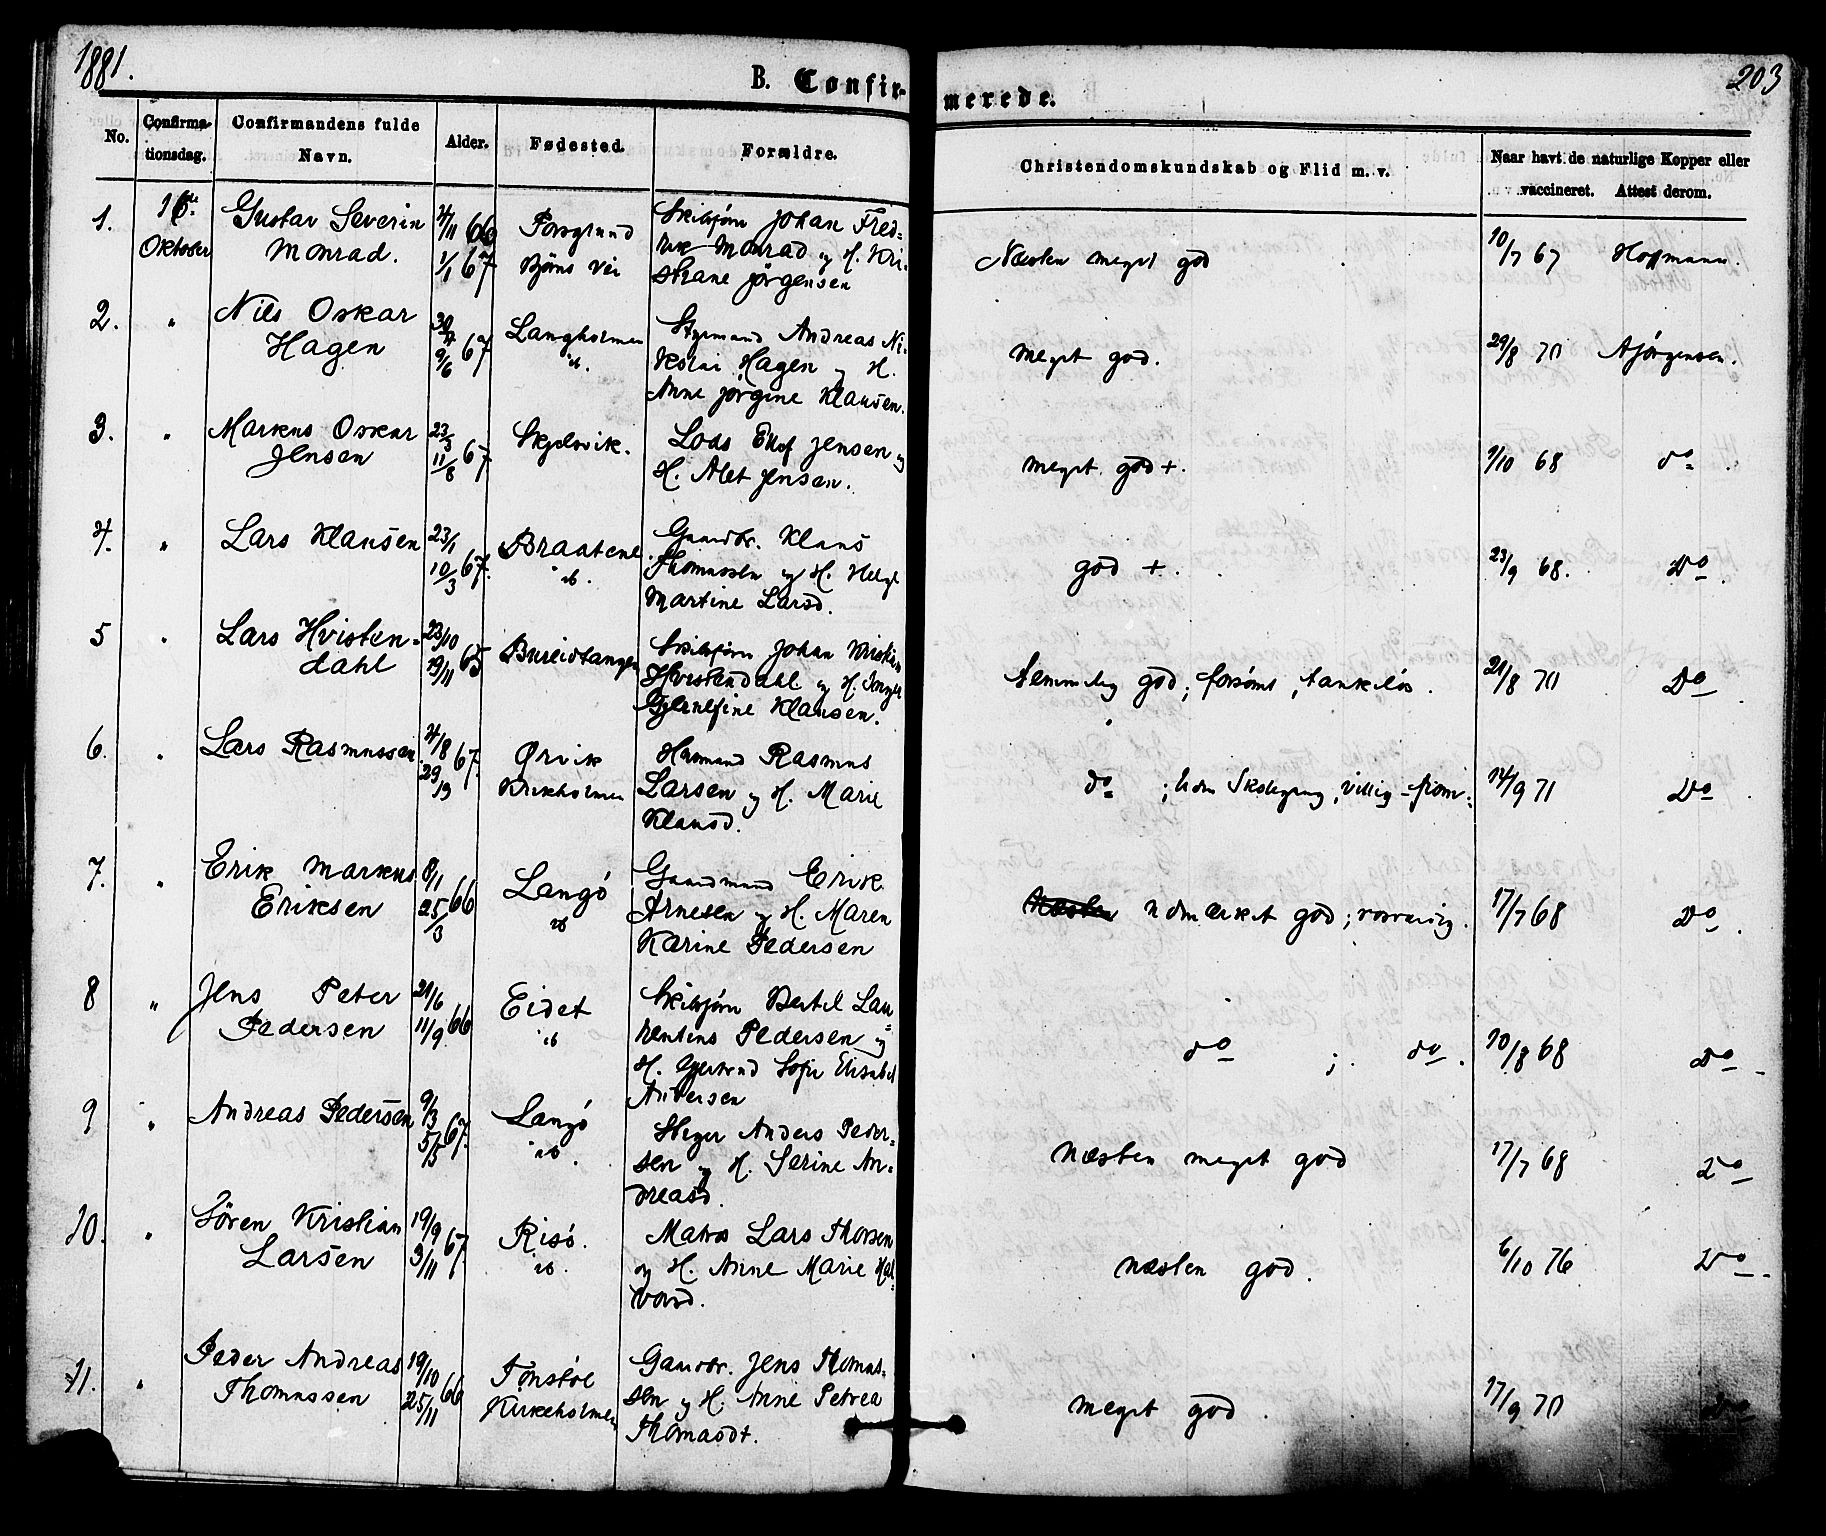 1881.
203
B. Confirmerede.
No.
Confirmationsdag.
Confirmandens fulde Navn.
Alder.
Fødested.
Forældre.
Christendomskundskab og Flid m. v.
Naar havt de naturlige Kopper eller
vaccineret. Attest derom.
1. Gustav Severin 4/11 66 Porsgrund Skibsfører Johan Fred=
Oktober Monrad. 1/1 67 Björns Vei Monrad og H. Kri-
Jörgensen
Næsten meget god 10/7 67 Hoffmann.
2. " Nils Oskar Langholmen Styrmand Andreas Ni-
Hagen 9/6 67 ib. kolai Hagen og H.
Anne Jörgine Klausen.
meget god. 29/8 70 AJörgensen.
3. " Markus Oskar 23/3 Skjelsvik. Lods Jensen og
Jensen 11/8 67 H. Alet Jensen.
meget god +. 1/10 68 do.
4. " Lars Klausen 23/1 Braatene Gaardbr. Klaus
10/3 67. ib. Thomassen og H. Helge
Martine Larsd.
god +. 23/9 68. Do.
5 " Lars Hvisten= 23/10 Bureidtangen Skibsfører Johan Kristian
dahl 19/11 65 Hvistendahl og H.
Klausen.
temmelig god; forsømt, tankeløs. 21/8 70 Do
6. " Lars Rasmussen 4/8 67. Ørvik Husmand Rasmus
29/9 Kirkeholmen Larsen og H. Marie
Klausd.
do ; uden Skolegang, villig - from. 14/9 71 Do
7. " Erik Markus 8/1 Langö Gaardmand Erik
Eriksen 25/3 66 ib Arnesen og H. Maren
Karine Pedersen
Næsten udmærket god; 17/7 68 Do.
8 " Jens Peter 21/6 Eidet Skibsfører Bertel Lau=
Pedersen 11/9 66 ib rentius Pedersen og
H. Gjertrud Sofie Elisabet
Andersen
do ; do. 10/8 68 Do
9 " Andreas Pedersen 9/3 Langö Anders Peder=
5/5 67. ib. sen og H. Serine An=
dreasd.
Næsten meget god 17/7 68 Do
10. " Sören Kristian 19/9 Risö. Matros Lars Thorsen
Larsen 3/11 67. ib. og H. Anne Marie Hal-
vorsd.
næsten god. 6/10 76 Do.
11. " Peder Andreas 19/10 Gaardbr. Jens Thomas=
Thomassen 25/11 66 Kirkeholmen sen og H. Anne Petrea
Thomasdt.
meget god. 17/9 70 Do